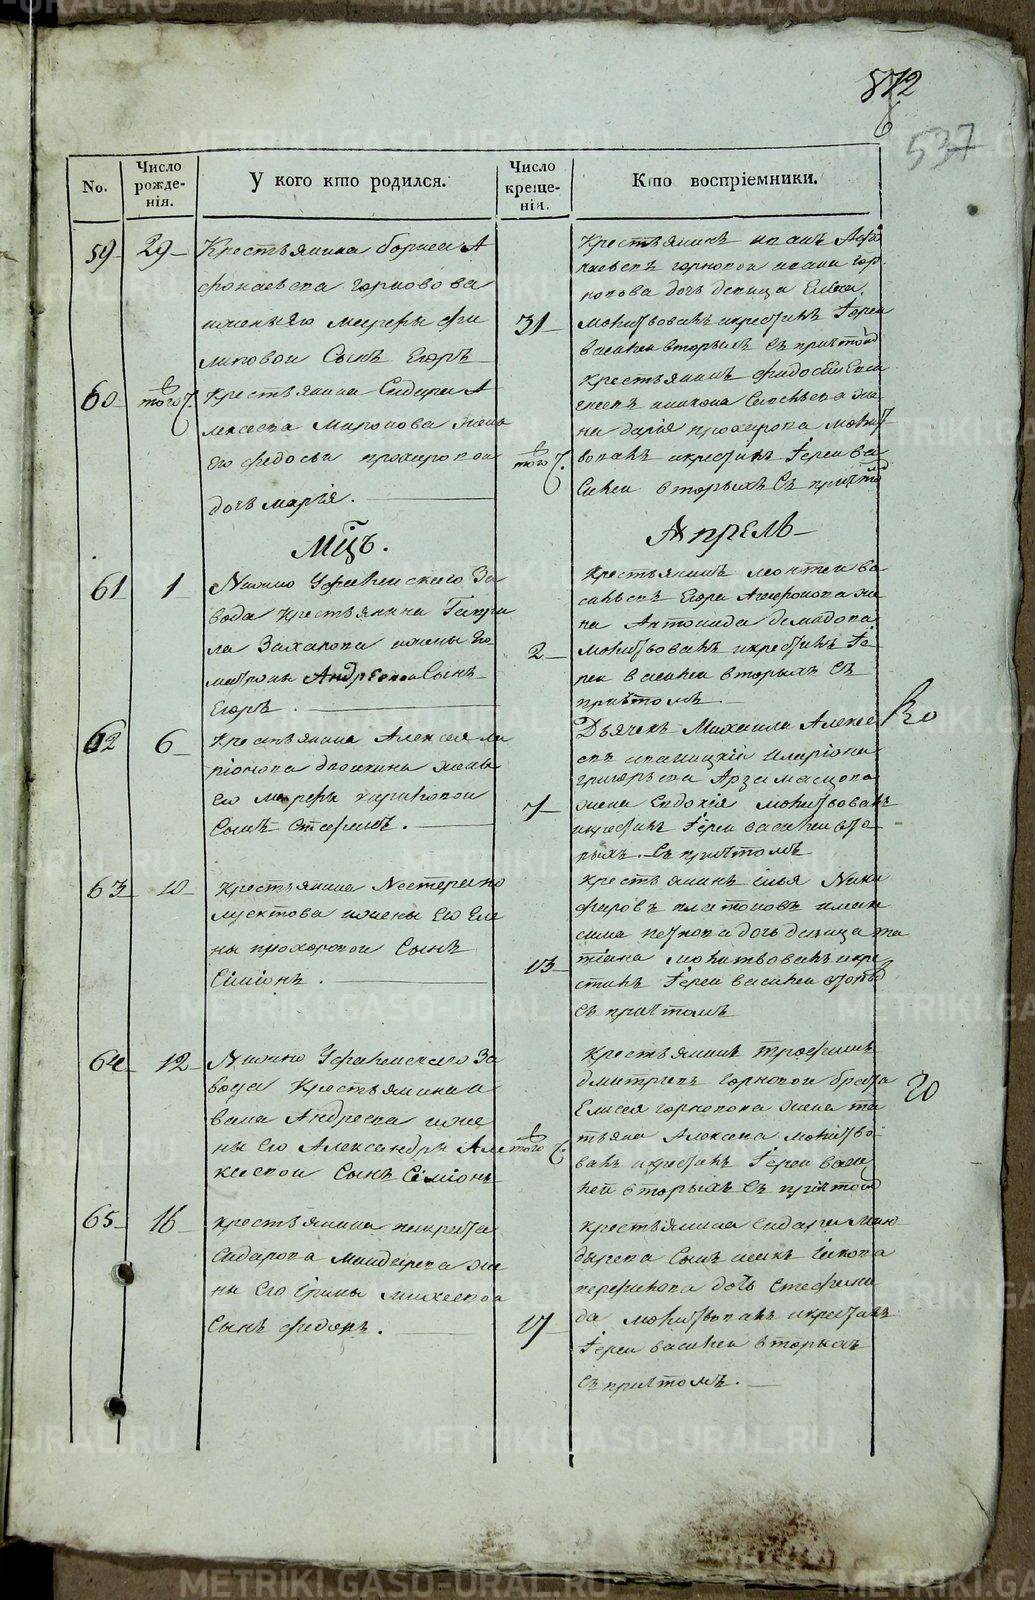 872
6
537
No.
Число рожде-нія.
У кого кто родился.
Число креще-ніи.
Кто воспріемники.
59
29
Крестьянина бориса А
фонасьева горновова
жены его марѳы фи
липовой Сынъ Егоръ
31
Крестьянинъ иванъ Афо
насьевъ горновой ивана гор
новова дочь девица Елена
молитвовалъ икрестилъ Іереи
василеи вторыхъ Съ причтомъ
60
того ч.
Крестьянина Сидора А
лексеева Миронова жены
Его федосьи прохоровои
дочь марія.
того ч.
Крестьянинъ федосеи Ели
жена дарья прохорова молит
вовалъ икрестилъ Іереи ва
Силеи вторыхъ Съ причтомъ
Мцъ.
Апрель
61
1
Нижно Уфалейского За
вода Крестьянина Гаври
ла Захарова жены Его
матроны Андреевои Сынъ
Егоръ.
2
Крестьянинъ леонтеи ва
сильевъ Егора же
на Антонида демидова
молитвовалъ икрестилъ Іе
реи василеи вторыхъ Съ
причтомъ.
62
6
Крестьянина Алексея ла
ріонова жены
Его марѳы
Сынъ Стефанъ.
7
Дьячекъ Михаила Алексе
евъ иларіона
григорьева Арзамасцова
жена Евдокія молитвовалъ
икрестилъ Іереи василеи вто
рыхъ. Съ причтомъ
63
10
Крестьянина Нестера по
луектова жены Его Еле
ны прохоровои Сынъ
Сімионъ.
13
Крестьянинъ илья Ники
форовъ платоновъ и мак
сима дочь девица та
тіана молитвовалъ икре
стилъ Іереи василеи вторыхъ
Съ причтомъ
64
12
Нижно Уфалейского За
вода Крестьянина и
вана Андреева жe
ны Его Александры Але
ксеевои Сынъ Сімионъ
того ч.
Крестьянинъ трофимъ
дмитріевъ горновои брата
Елисея горновова жена та
тьяна Алексеева молитво
валъ икрестилъ Іереи васи
леи вторыхъ Съ причтомъ
20
65
16
Крестьянина панкрата
Сидарова Мандарева же
ны Его Ірины михеевои
Сынъ федоръ.
17
Крестьянина Сидара Ман
дарева Сынъ
дочь Стефани
да молитвовалъ икрестилъ
Іереи василеи вторыхъ
Съ причтомъ.
METRIKI.GASO-URAL.RU